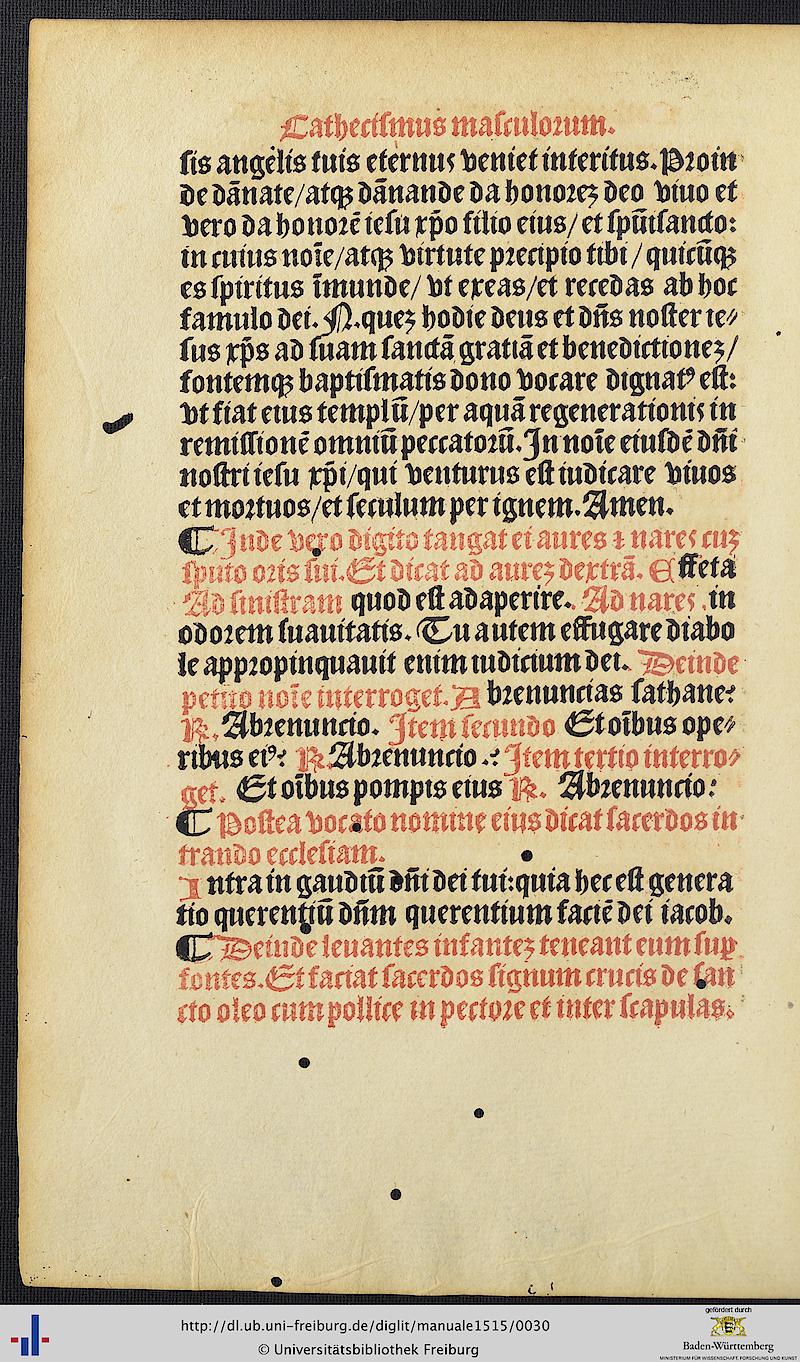 Cathecismus masculorum.
sis angelis tuis eternus veniet interitus. Proin
de dãnate/atqꝫ dãnande da honoreȝ deo viuo et
vero da honorē iesu xp̄o filio eius/ et spūisancto:
in cuius noīe/atqꝫ virtute precipio tibi / quicūqꝫ
es spiritus īmunde/ vt exeas/et recedas ab hoc
famulo dei. N. queȝ hodie deus et dn̄s noster ie⸗
sus xp̄s ad suam sanctā gratiā et benedictioneȝ/
fontemqꝫ baptismatis dono vocare dignatꝰ est:
vt fiat eius templū/per aquā regenerationis in
remissionē omniū peccatorū. In noīe eiusdē dn̄i
nostri iesu xp̄i/qui venturus est iudicare viuos
et mortuos/et seculum per ignem. Amen.
¶ Inde vero digito tangat ei aures ⁊ nares cuȝ
sputo oris sui. Et dicat ad aureȝ dextrā. Effeta
Ad sinistram quod est adaperire. Ad nares .in
odorem suauitatis. Tu autem effugare diabo
le appropinquauit enim iudicium dei. Deinde
petito noīe interroget. Abrenuncias sathane?
℟. Abrenuncio. Item secundo Et oībus ope⸗
ribus eiꝰ? ℟. Abrenuncio .? Item tertio interro⸗
get. Et oībus pompis eius ℟. Abrenuncio:
¶ Postea vocato nomine eius dicat sacerdos in
trando ecclesiam.
Intra in gaudiū dn̄i dei tui: quia hec est genera
tio querentiū dn̄m querentium faciē dei iacob.
¶ Deinde leuantes infanteȝ teneant eum suꝑ
fontes. Et faciat sacerdos signum crucis de san
cto oleo cum pollice in pectore et inter scapulas.
http://dl.ub.uni-freiburg.de/diglit/manuale1515/0030
© Universitätsbibliothek Freiburg
gefördert durch
Baden-Württemberg
MINISTERIUM FÜR WISSENSCHAFT, FORSCHUNG UND KUNST